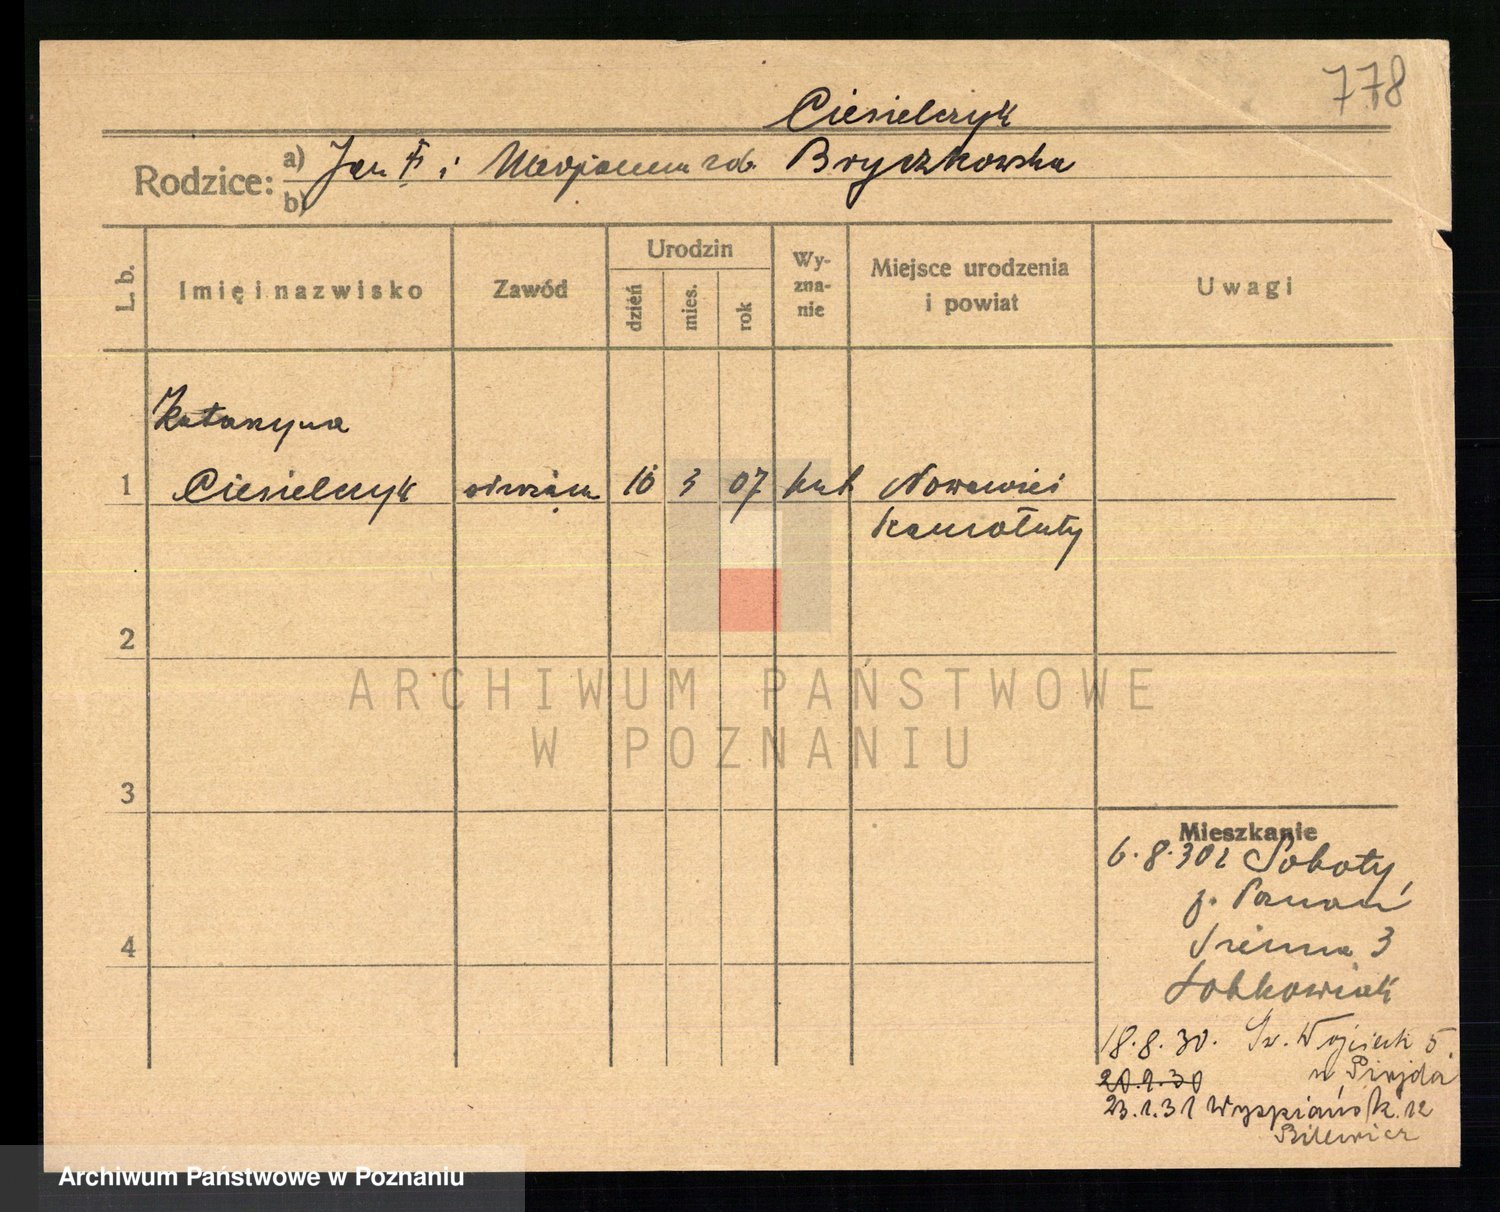 778
Ciesielczyk
Rodzice: a) Jan i Marjanna zd. Bryczkowska
b)
L. b. Imię i nazwisko Zawód Urodzin dzień mies. rok Wy-zna-nie Miejsce urodzenia i powiat Uwagi
Katarzyna
1 Ciesielczyk służąca 16 3 07 kat Nowawieś
Szamotuły
2
ARCHIWUM PAŃSTWOWE
W POZNANIU
3
Mieszkanie
6.8.30 z Soboty,
p. Poznań
3
4
18.8.30. Św. Wojciech 5.
20.9.30
23.1.31 Wyspiańsk. 12
Bilewicz
Archiwum Państwowe w Poznaniu